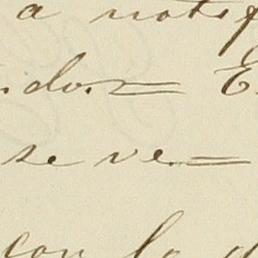 a notif
idos= E
se ve=
con la d